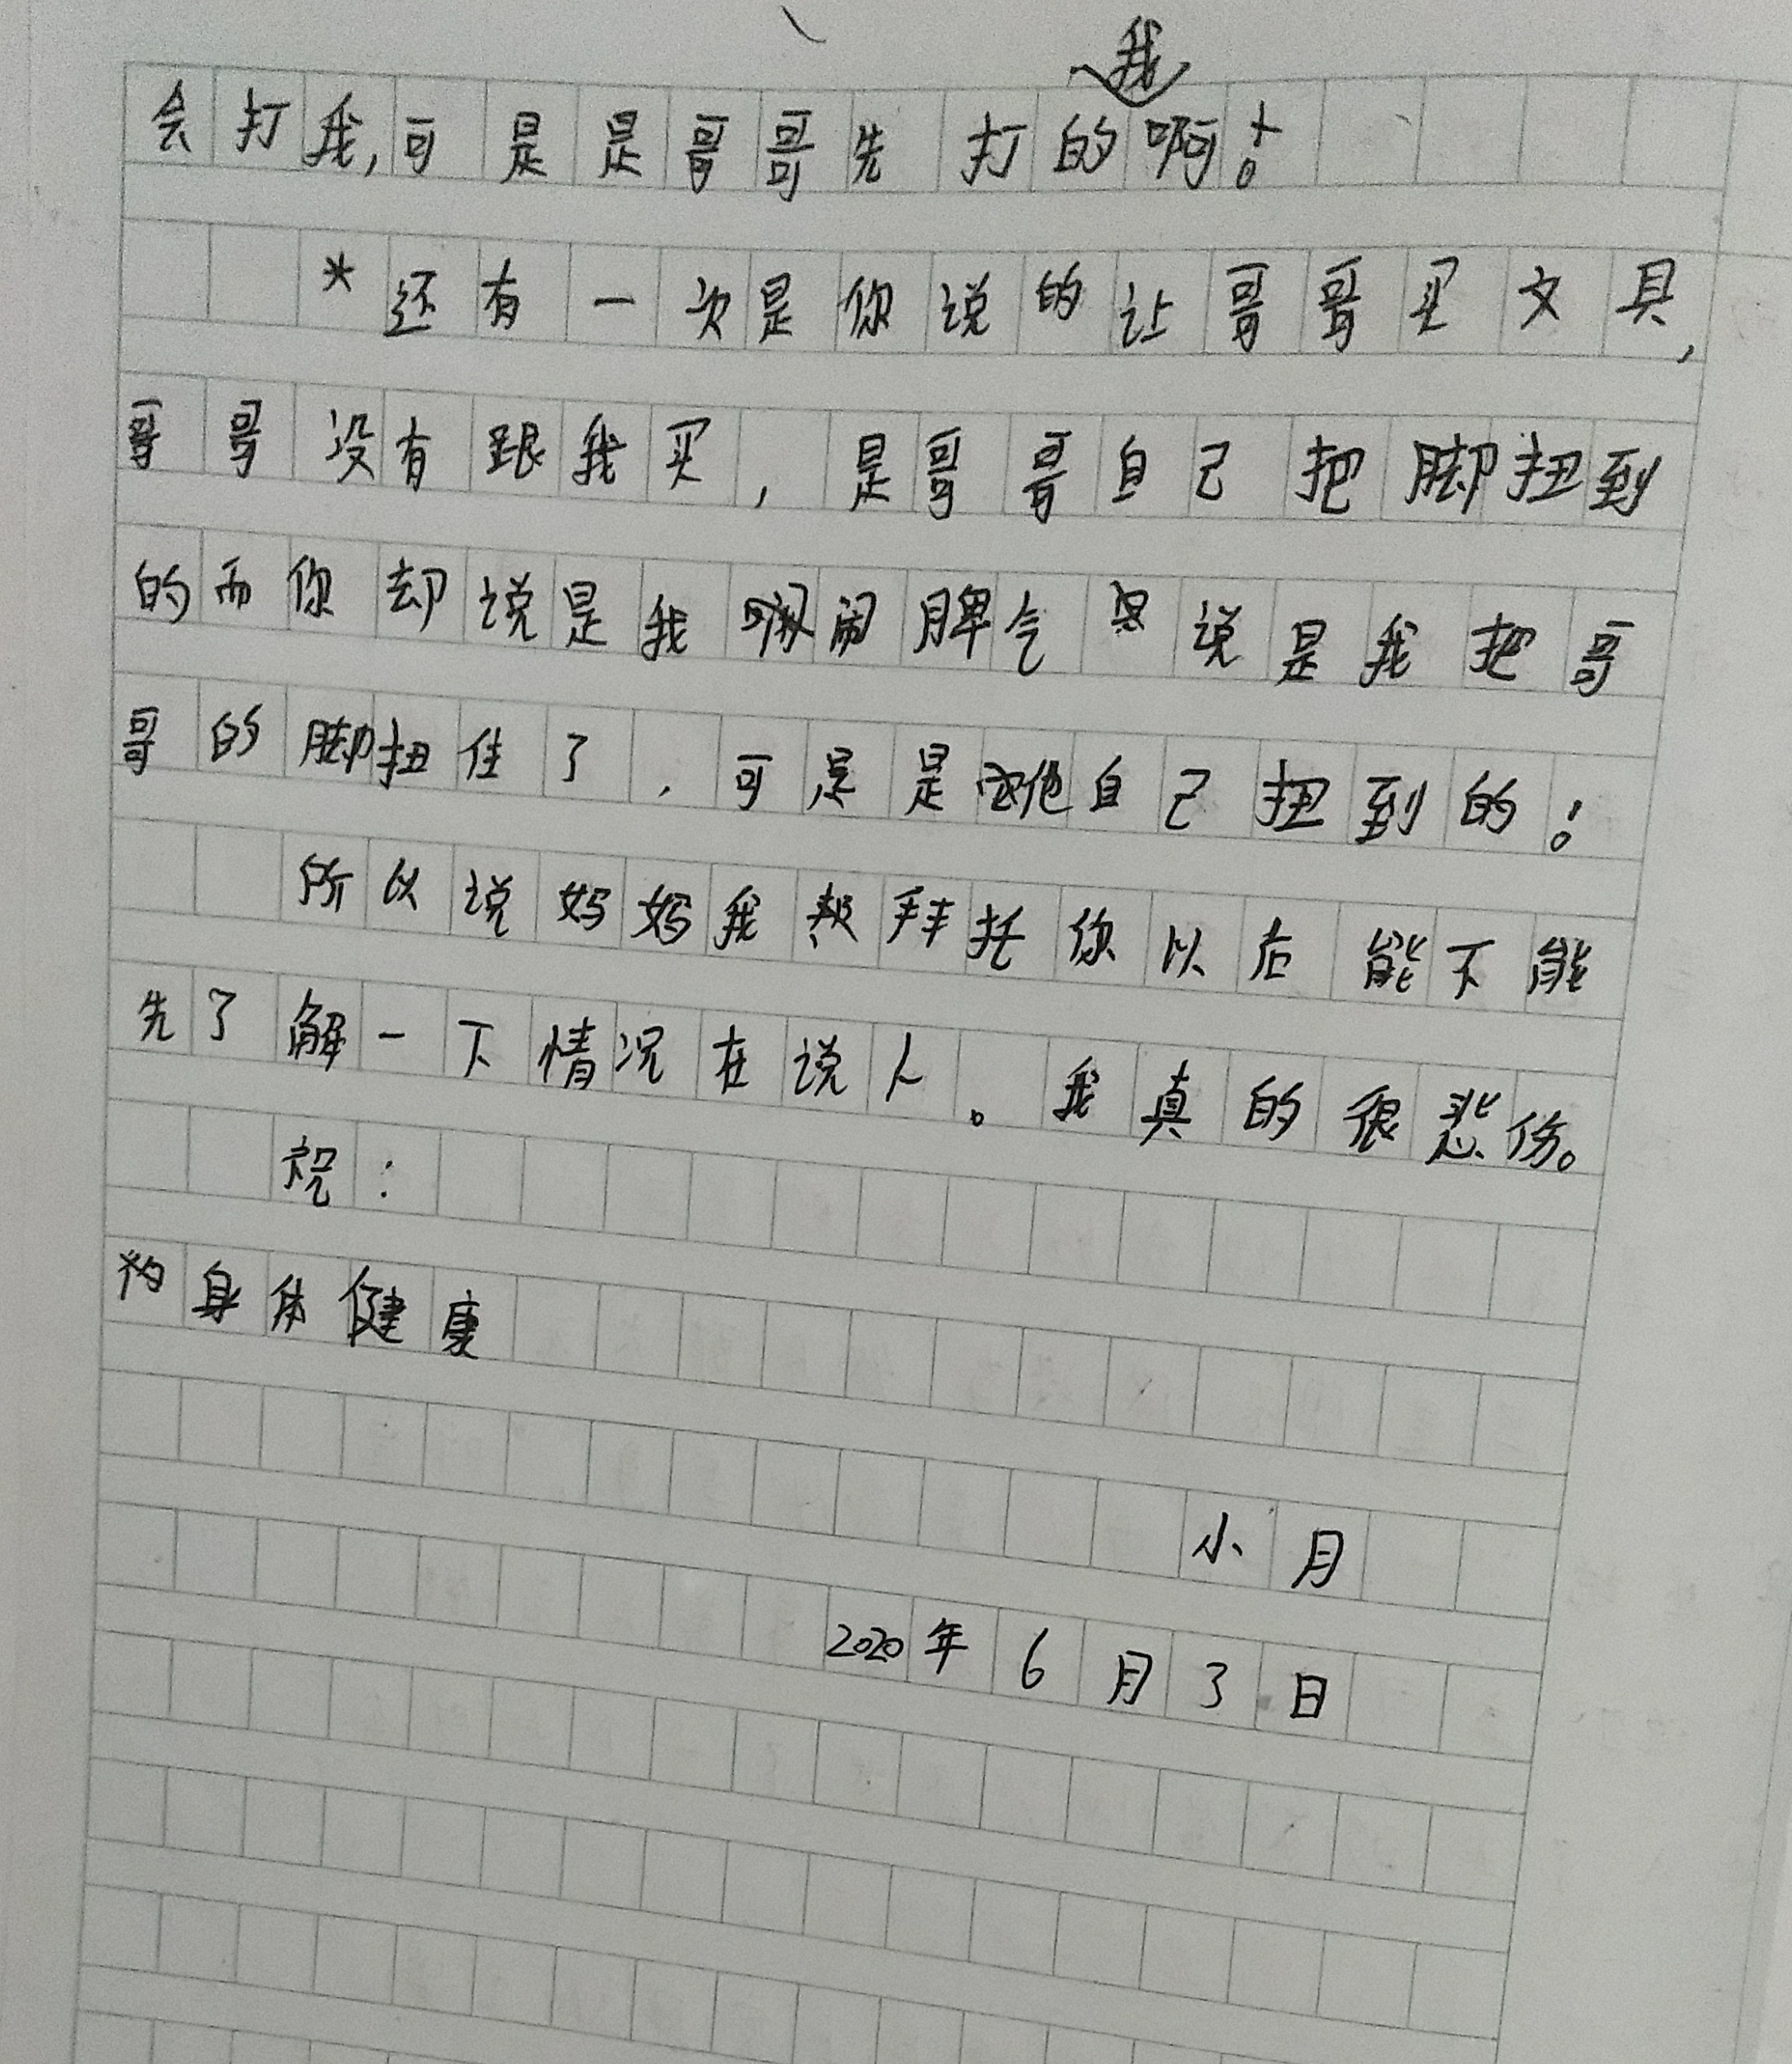 会打我,可是是哥哥先打我的啊!
*还有一次是你说的让哥哥买文具,
哥哥没有跟我买,是哥哥自己把脚扭到
的而你却说是我闹脾气 说是我把哥
哥的脚扭住了,可是是他自己扭到的!
所以说妈妈我 拜托你以后能不能
先了解一下情况在说人。我真的很悲伤。
祝:
身体健康
小月
2020年6月3日